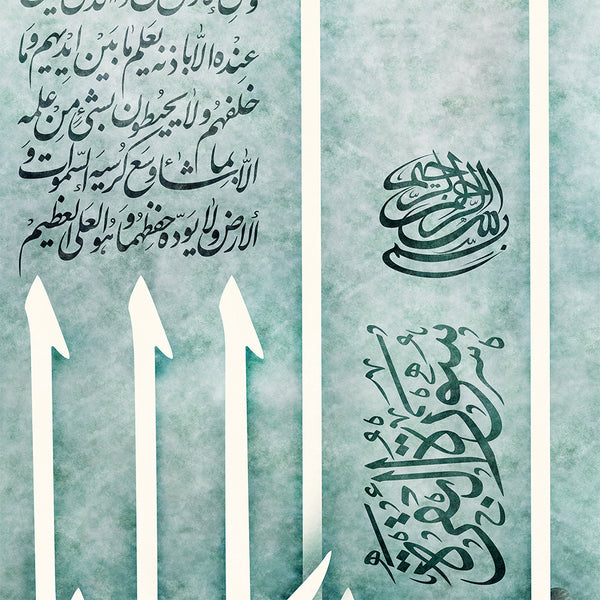 عنده الا باذنه يعلم ما بين ايديهم وما
خلفهم ولا يحيطون بشيء من علمه
الا بما شاء وسع كرسيه السموات و
الارض ولا يؤده حفظهما وهو العلي العظيم
بسم الله الرحمن الرحيم
سورة البقرة